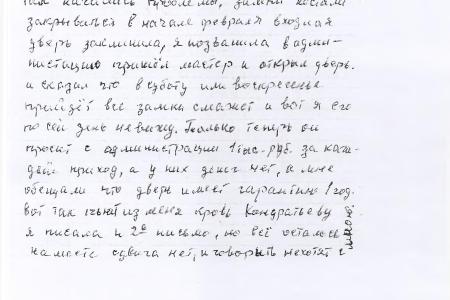 там начались проблемы, замки хостали
закрываться в начале февраля входная
дверь заклинила, я позвонила в адми-
нистацию пришёл мастер и открыл дверь.
и сказал что в суботу или воскресенье
прийдёт все замки смажет и вот я его
по сей день не вижу. Только теперь он
просит с администрации 1 тыс. руб. за каж-
дый приход, а у них денег нет, а мне
обещали что дверь имеет гарантию 1 год.
вот так из меня кровь Кондратьеву
я писала и 2е письмо, но всё осталось
на месте сдвига нет, и говорить нехотят с
мною.